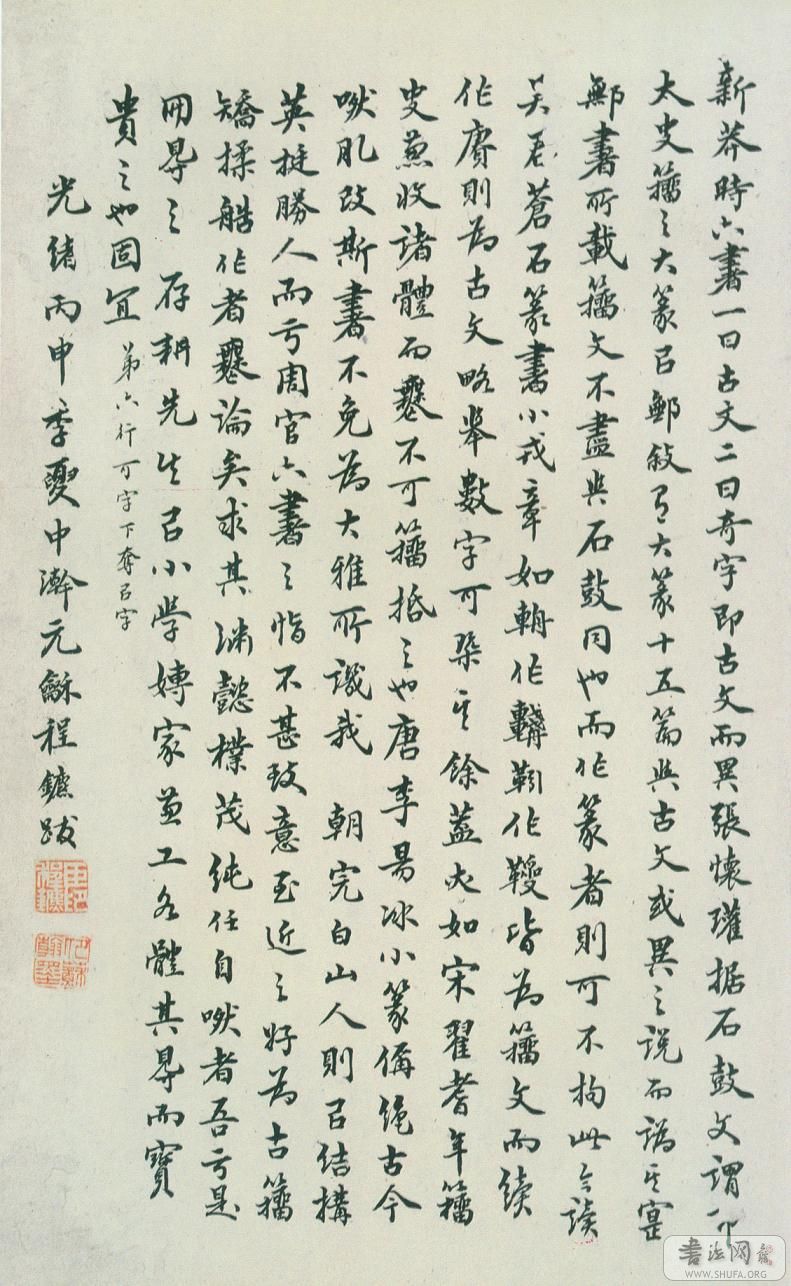 新莽時六書一曰古文二曰奇字即古文而異張懷瓘据石鼓文謂即
太史籀之大篆㠯鄦敘有大篆十五篇與古文或異之說而譌其寔
鄦書所載籀文不盡與石鼓同也而作篆者則可不拘此今讀
吴君蒼石篆書小戎章如輈作 靷作 皆為籀文而續
作賡則為古文略舉數字可槩其餘蓋亦如宋翟耆年籀
史兼收諸體而 不可籀抵之也唐李昜冰小篆偁絶古今
肰肊改斯書不免為大雅所譏我朝完白山人則㠯結構
英挺勝人而亏周官六書之恉不甚致意至近之好為古籀
矯揉 作者 論矣求其渊懿樸茂純任自肰者吾亏是
冊㝵之存耕先生㠯小學專家兼工各體其㝵而寶
貴之也固宜 第六行可字下奪㠯字
光緒丙申季夏中澣元龢程鑣跋
書法网
WWW.SHUFA.ORG